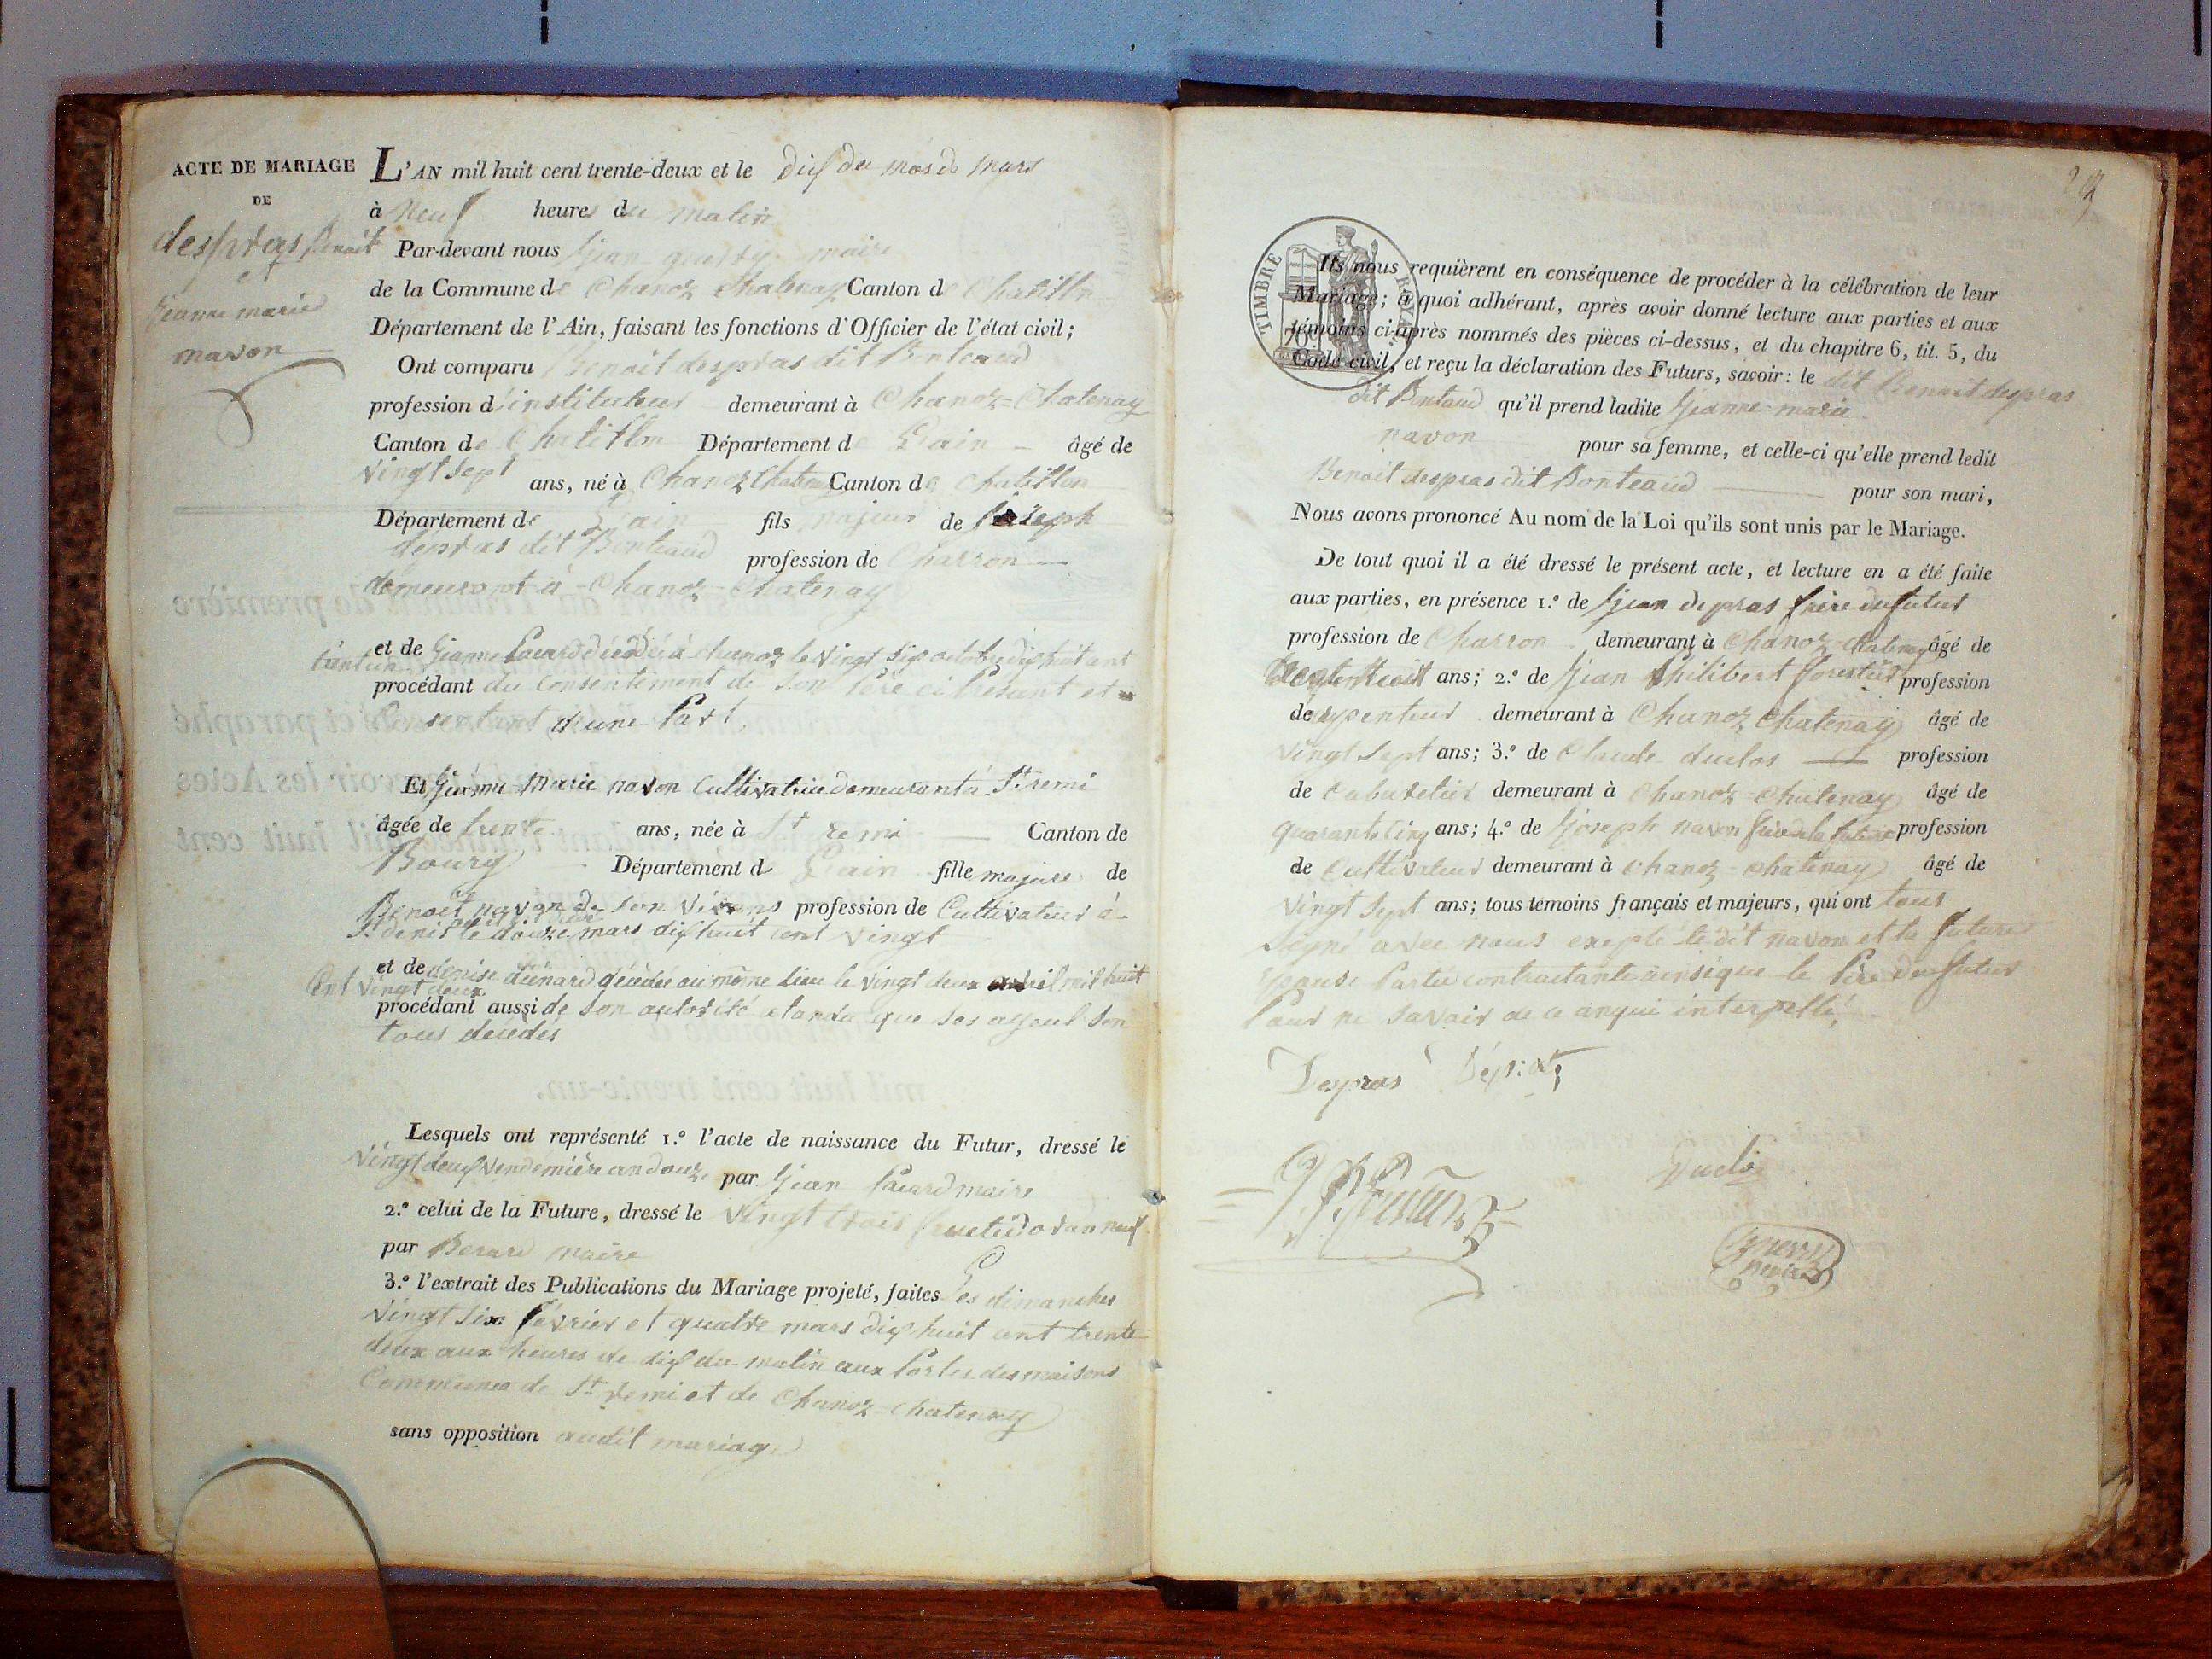 ACTE DE MARIAGE
DE
despras Benoit
et
Jeanne marie
navon
L'AN mil huit cent trente-deux et le dix du mois de mars
à neuf heures du matin
Par-devant nous Jean maire
de la Commune de Chanoz Chatenay Canton de Chatillon
Département de l'Ain, faisant les fonctions d'Officier de l'état civil;
Ont comparu Benoit despras dit Bonteaud
profession d'instituteur demeurant à Chanoz=Chatenay
Canton de Chatillon Département de L'ain âgé de
vingt sept ans, né à Chanoz Chatenay Canton de Chatillon
Département de L'ain fils majeur de Joseph
depras dit Bonteaud profession de Charron
demeurant à Chanoz-Chatenay
et de Jeanne Pacard décédéé à chanoz le vingt six octobre dix huit cent
trente un
procédant du consentement de son Père ci Present et
Consentant d'une Part.
Et Jeanne Marie navon Cultivatrice demeurant à St remi
âgée de trente ans, née à St remi Canton de
Bourg Département de L'ain fille majure de
Benoit navon de son vivans profession de Cultivateur à
St denis le douze mars dix huit cent vingt
et de denise décédée au même lieu le vingt deux avril mil huit
Cent vingt deux
procédant aussi de son autorité atandu que ses ayeul son
tous decedés
Lesquels ont représenté 1.º l'acte de naissance du Futur, dressé le
vingt deux vendemière an douze par Jean Pacard maire
2.º celui de la Future, dressé le vingt trois fructidor an neuf
par Berard maire
3.º l'extrait des Publications du Mariage projeté, faites Les dimanches
vingt six février et quatre mars dix huit cent trente
deux aux heures de dix du matin aux Portes des maisons
Communes de St remi et de Chanoz-Chatenay
sans opposition audit mariage
TIMBRE ROYAL
70c
Ils nous requièrent en conséquence de procéder à la célébration de leur
Mariage; à quoi adhérant, après avoir donné lecture aux parties et aux
témoins ci-après nommés des pièces ci-dessus, et du chapitre 6, tit. 5, du
Code civil, et reçu la déclaration des Futurs, savoir: le dit Benoit despras
dit Bontaud qu'il prend ladite Jeanne-marie
navon pour sa femme, et celle-ci qu'elle prend ledit
Benoit despras dit Bonteaud pour son mari,
Nous avons prononcé Au nom de la Loi qu'ils sont unis par le Mariage.
De tout quoi il a été dressé le présent acte, et lecture en a été faite
aux parties, en présence 1.º de Jean depras frère du futur
profession de Charron demeurant à Chanoz-Chatenay âgé de
ans; 2.º de Jean Philibert forestier profession
de demeurant à Chanoz Chatenay âgé de
vingt sept ans; 3.º de Claude duclos profession
de Cabaretier demeurant à Chanoz-Chatenay âgé de
quarante Cinq ans; 4.º de Joseph navon frère de la future profession
de Cultivateur demeurant à Chanoz-Chatenay âgé de
vingt sept ans; tous temoins français et majeurs, qui ont tous
signé avec nous exepté le dit navon et la future
epouse Partie contractante ainsi que le Père du futur
Pour ne savoir de ce anqui interpellé,
Despras
Duclos